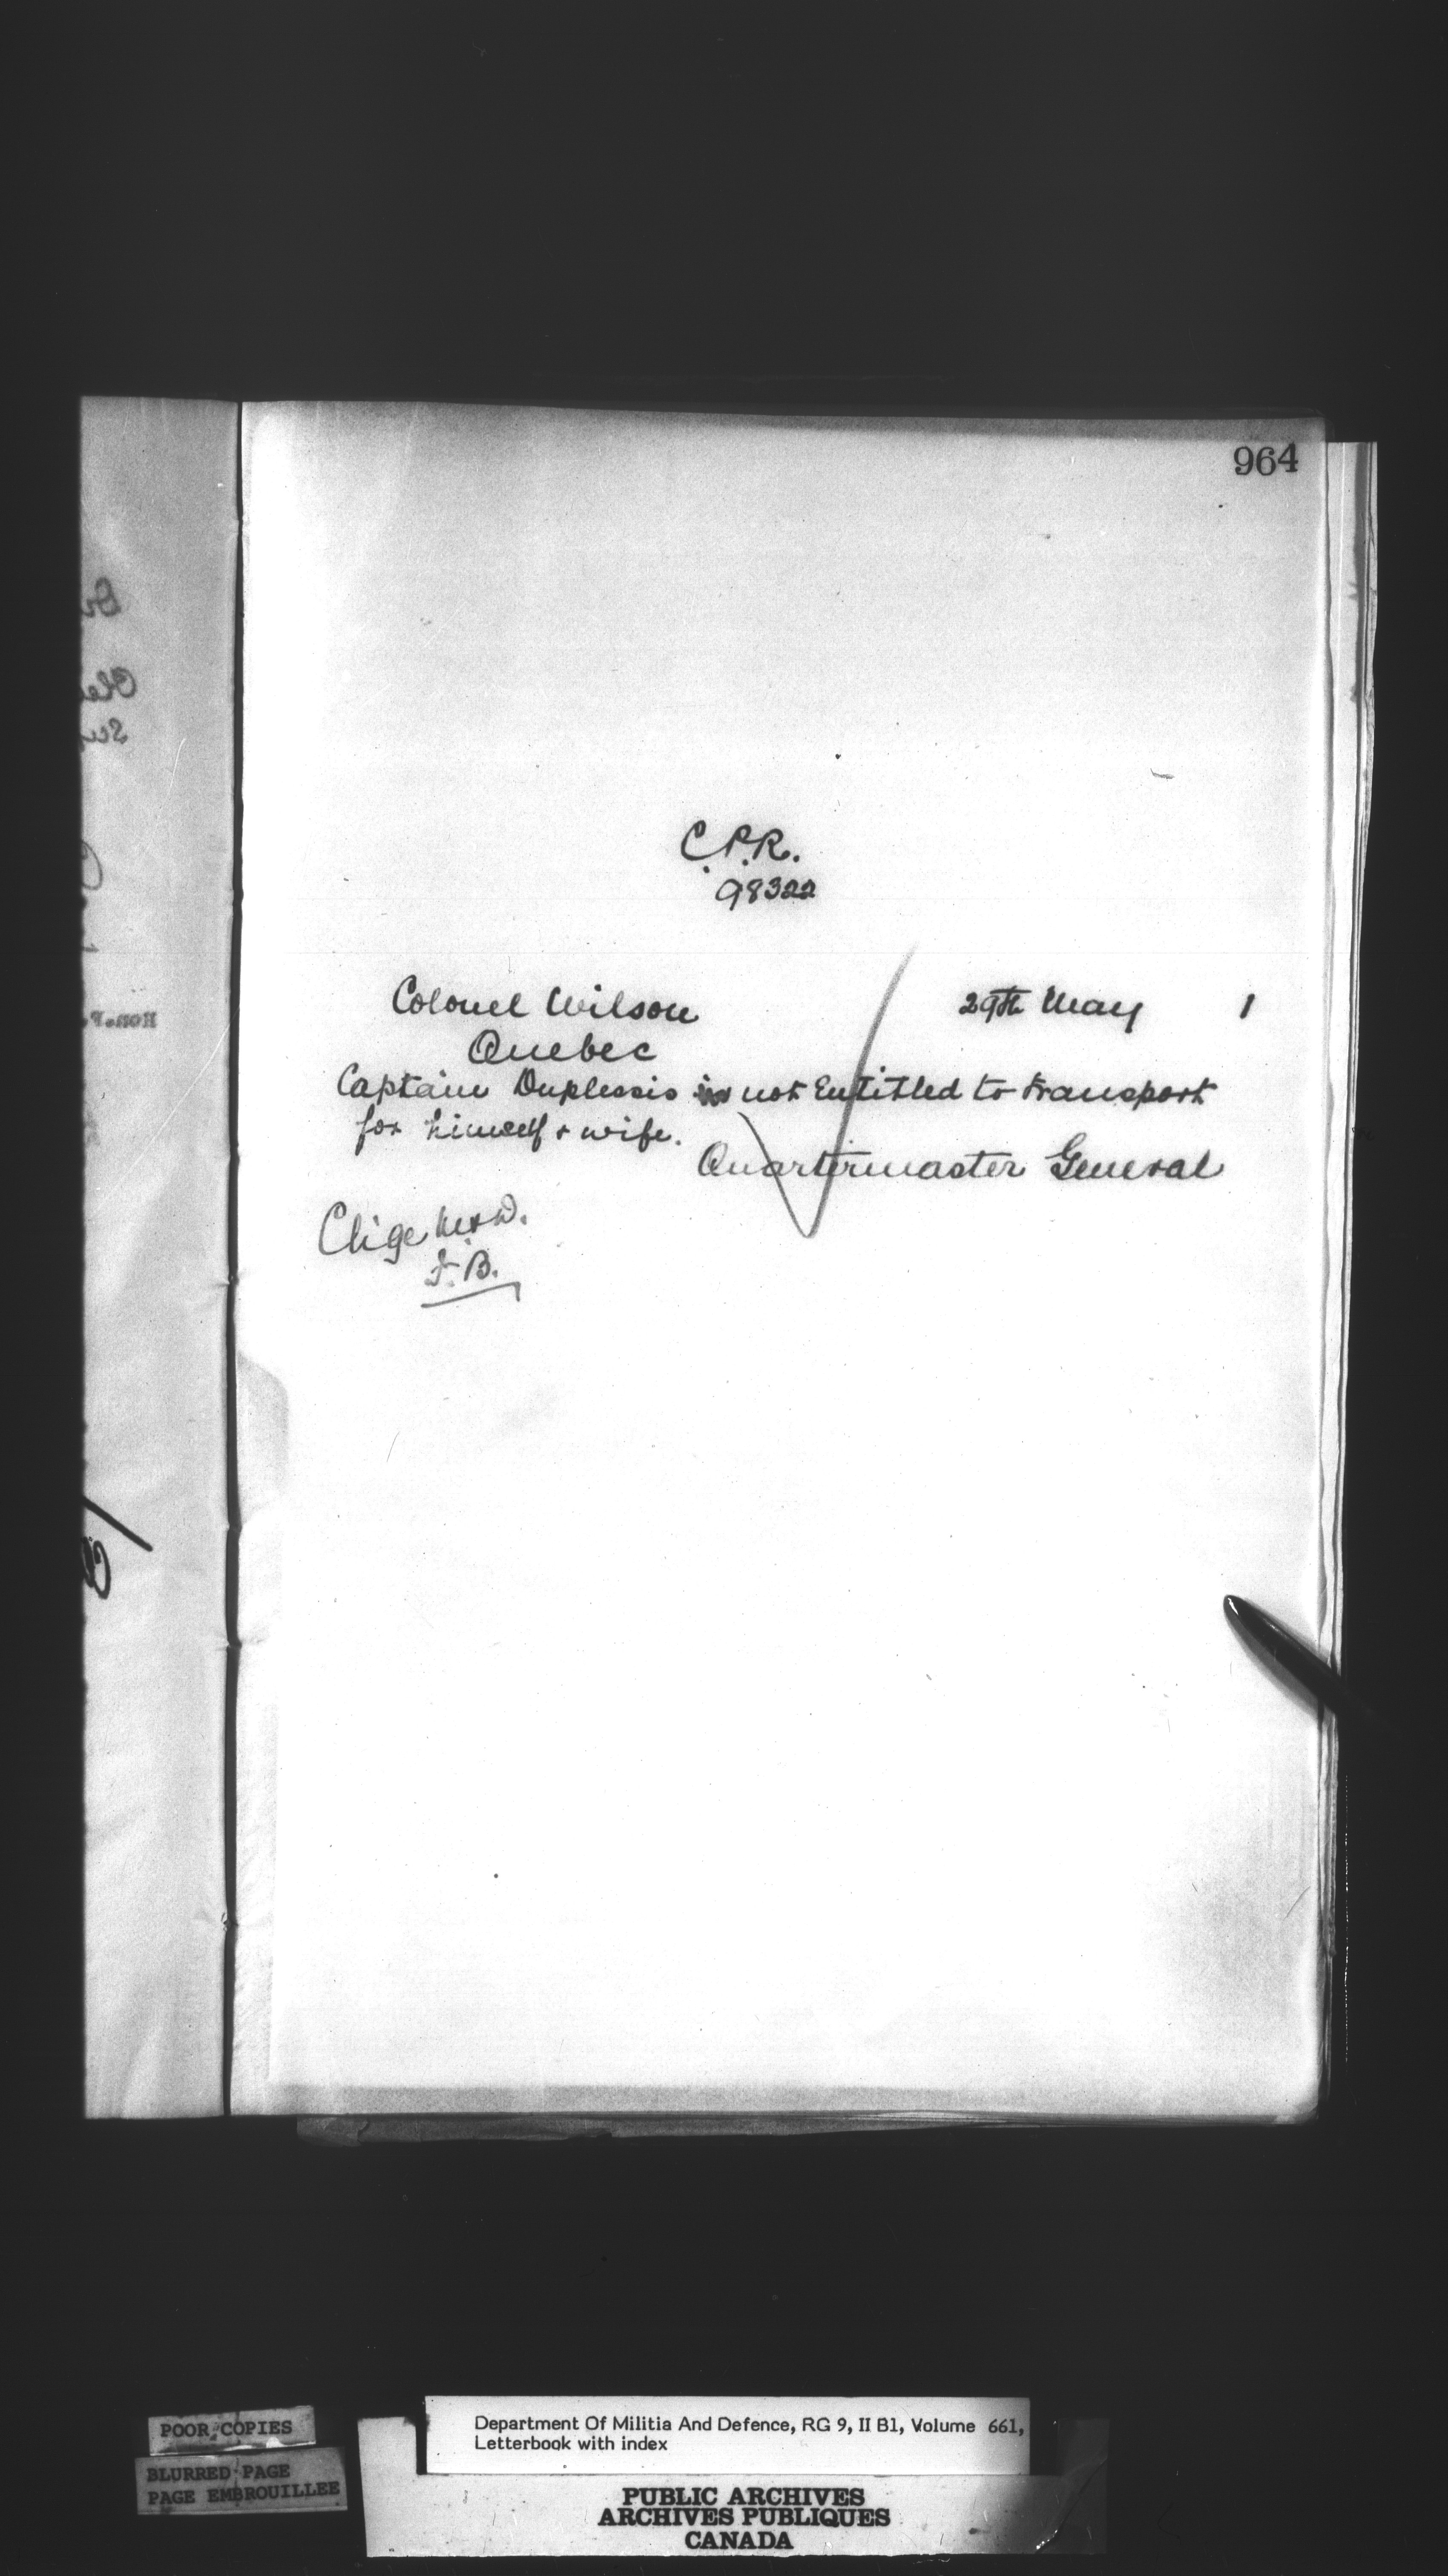 964
C.P.R.
98322
Colonel Wilson 29th May 1
Quebec
Captain Duplessis is not Entitled to transport
for himself & wife.
Quartermaster General
Chge M&D.
F.B.
Hon.P.
POOR COPIES
BLURRED PAGE
PAGE EMBROUILLEE
Department Of Militia And Defence, RG 9, II B1, Volume 661,
Letterbook with index
PUBLIC ARCHIVES
ARCHIVES PUBLIQUES
CANADA